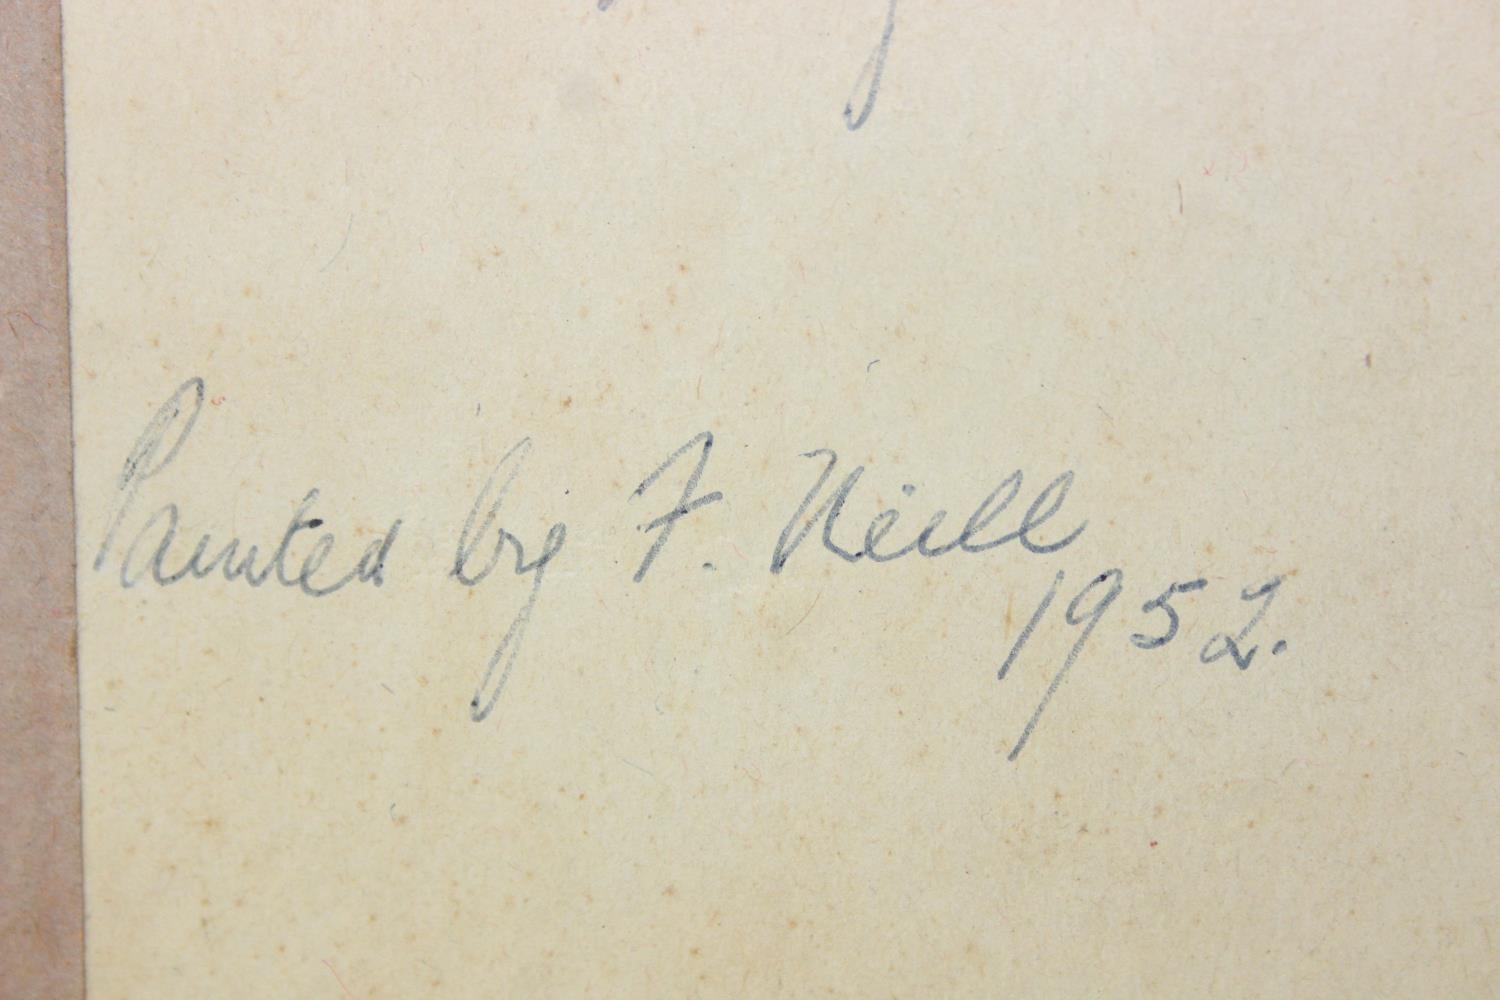 Painted by F. Neill
1952.